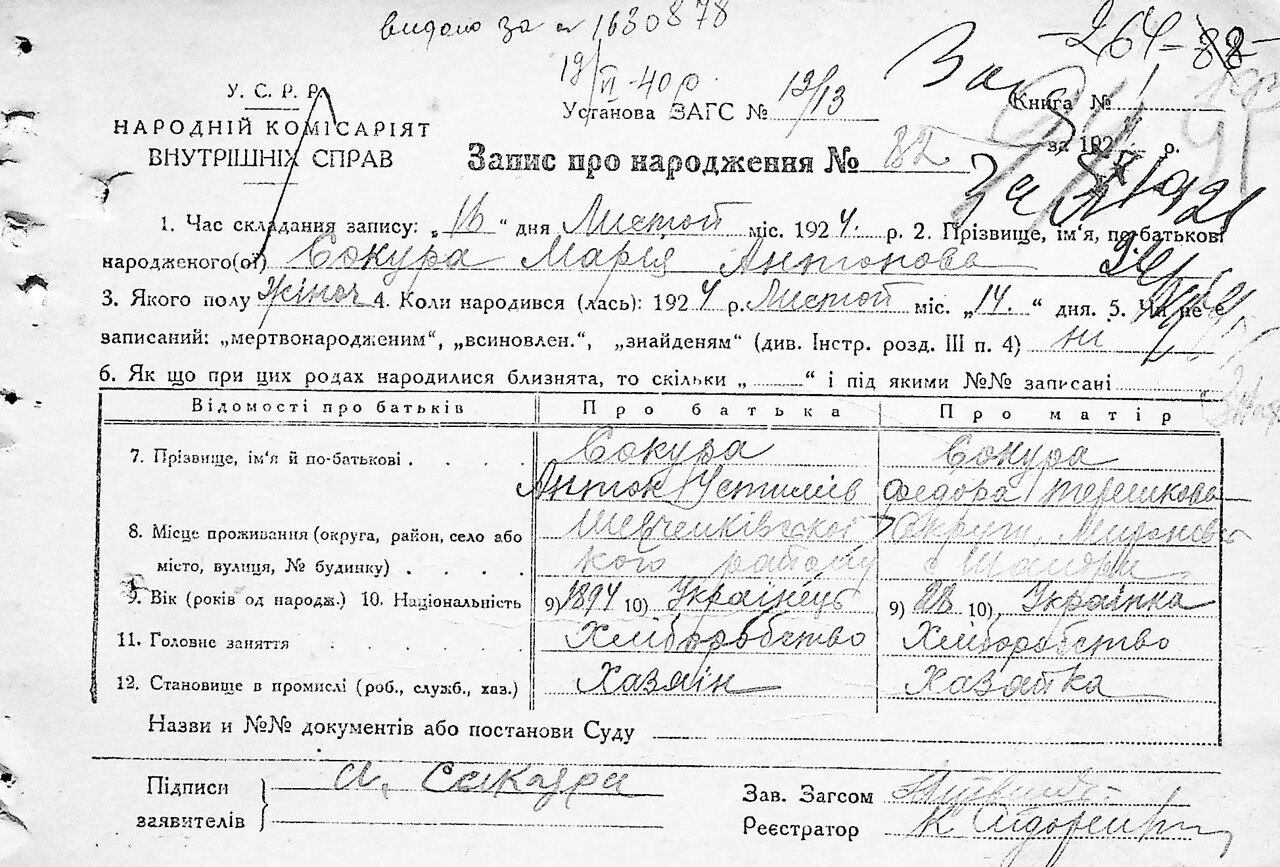 видано за № 1630878
19/VI-40 р.
-264-
У. С. Р. Р.
НАРОДНІЙ КОМІСАРІЯТ
ВНУТРІШНІХ СПРАВ
Установа ЗАГС № 13/13
Книга №
за 192 р.
Запис про народження № 82
1. Час складання запису: „16“ дня Листоп міс. 1924. р. 2. Прізвище, ім'я, по-батькові
народженого(ої) Сокура Марія Антонова
3. Якого полу жіноч 4. Коли народився (лась): 1924 р. Листоп міс. „14.“ дня. 5. Чи не є
записаний: „мертвонародженим“, „всиновлен.“, „знайденям“ (див. Інстр. розд. III п. 4) ні
6. Як що при цих родах народилися близнята, то скільки „ “ і під якими №№ записані
Відомості про батьків Про батька Про матір
7. Прізвище, ім'я й по-батькові Сокура Сокура
Антон Устимів Федора Терешкова
8. Місце проживання (округа, район, село або Шевченківської округи, Миронівсь
місто, вулиця, № будинку) кого району с Шандри
9. Вік (років од народж.) 10. Національність 9) 1894 10) Українець 9) 28 10) Українка
11. Головне заняття Хліборобство Хліборобство
12. Становище в промислі (роб., служб., хаз.) Хазяін Хазяйка
Назви и №№ документів або постанови Суду
Підписи А. Сакура
заявителів
Зав. Загсом
Реєстратор К